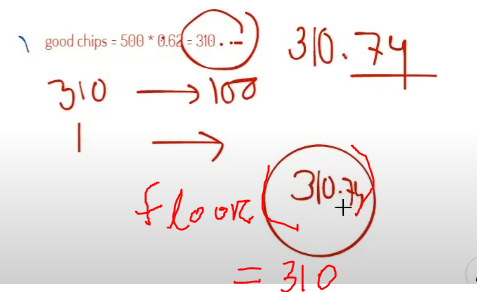 good chips = 500 * 0.62 = 310 . ...
310.74
310 → 100
1 →
floor (310.74)
= 310